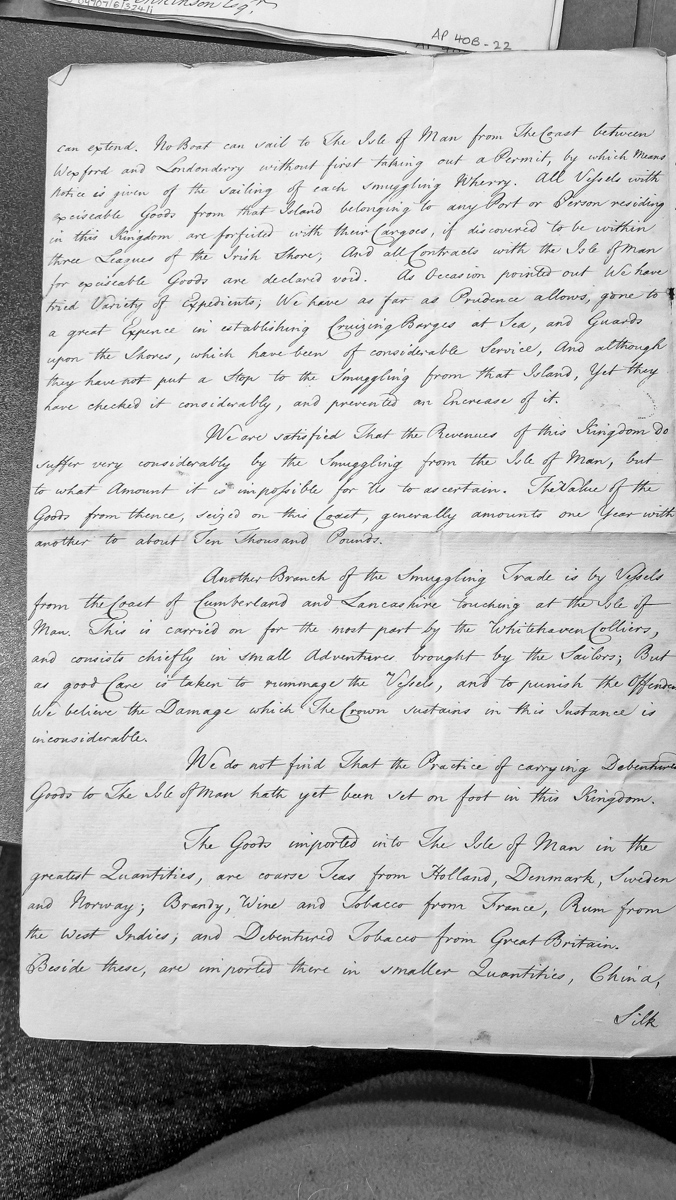 Jenkinson Esqr
AP 40B-22
can extend. No Boat can sail to The Isle of Man from The Coast between
Wexford and Londonderry without first taking out a Permit, by which Means
Notice is given of the sailing of each smuggling Wherry. All Vessels with
exciseable Goods from that Island belonging to any Port or Person residing
in this Kingdom are forfeited with their Cargoes, if discovered to be within
three Leagues of the Irish Shore; And all Contracts with the Isle of Man
for exciseable Goods are declared void. As Occasion pointed out We have
tried Variety of Expedients; We have as far as Prudence allows, gone to
a great Expence in establishing Cruizing Barges at Sea, and Guards
upon the Shores, which have been of considerable Service, And although
they have not put a Stop to the Smuggling from that Island, Yet they
have checked it considerably, and prevented an Encrease of it.
We are satisfied That the Revenues of this Kingdom do
suffer very considerably by the Smuggling from the Isle of Man, but
to what Amount it is impossible for Us to ascertain. The Value of the
Goods from thence, seized on this Coast, generally amounts one Year with
another to about Ten Thousand Pounds.
Another Branch of the Smuggling Trade is by Vessels
from the Coast of Cumberland and Lancashire touching at the Isle of
Man. This is carried on for the most part by the Whitehaven Colliers,
and consists chiefly in small Adventures brought by the Sailors; But
as good Care is taken to rummage the Vessels, and to punish the Offenders
We believe the Damage which The Crown sustains in this Instance is
inconsiderable.
We do not find That the Practice of carrying Debentured
Goods to The Isle of Man hath yet been set on foot in this Kingdom.
The Goods imported into The Isle of Man in the
greatest Quantities, are coarse Teas from Holland, Denmark, Sweden
and Norway; Brandy, Wine and Tobacco from France, Rum from
the West Indies; and Debentured Tobacco from Great Britain.
Beside these, are imported there in smaller Quantities, China,
Silk